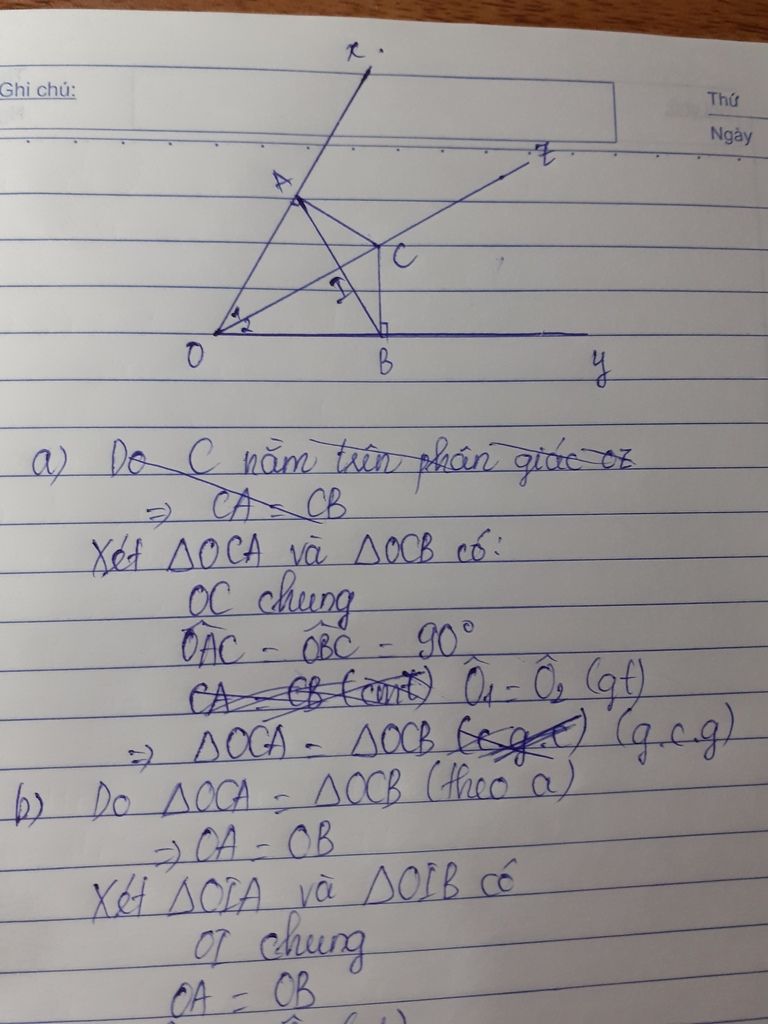 x
Ghi chú:
Thứ
Ngày
z
A
C
I
1
2
O
B
y
a) Do C nằm trên phân giác oz
⇒ CA = CB
Xét ΔOCA và ΔOCB có:
OC chung
OAC = OBC = 90°
CA = CB (cmt) Ô1 = Ô2 (gt)
⇒ ΔOCA = ΔOCB (c.g.c) (g.c.g)
b) Do ΔOCA = ΔOCB (theo a)
⇒ OA = OB
Xét ΔOIA và ΔOIB có
OI chung
OA = OB